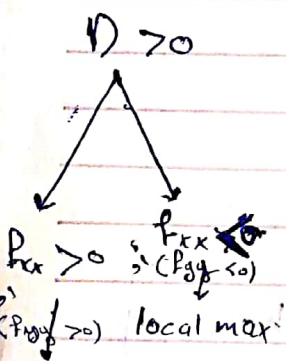 D > 0
fxx > 0 ; fxx < 0
; (fyy < 0)
(fyy > 0) local max